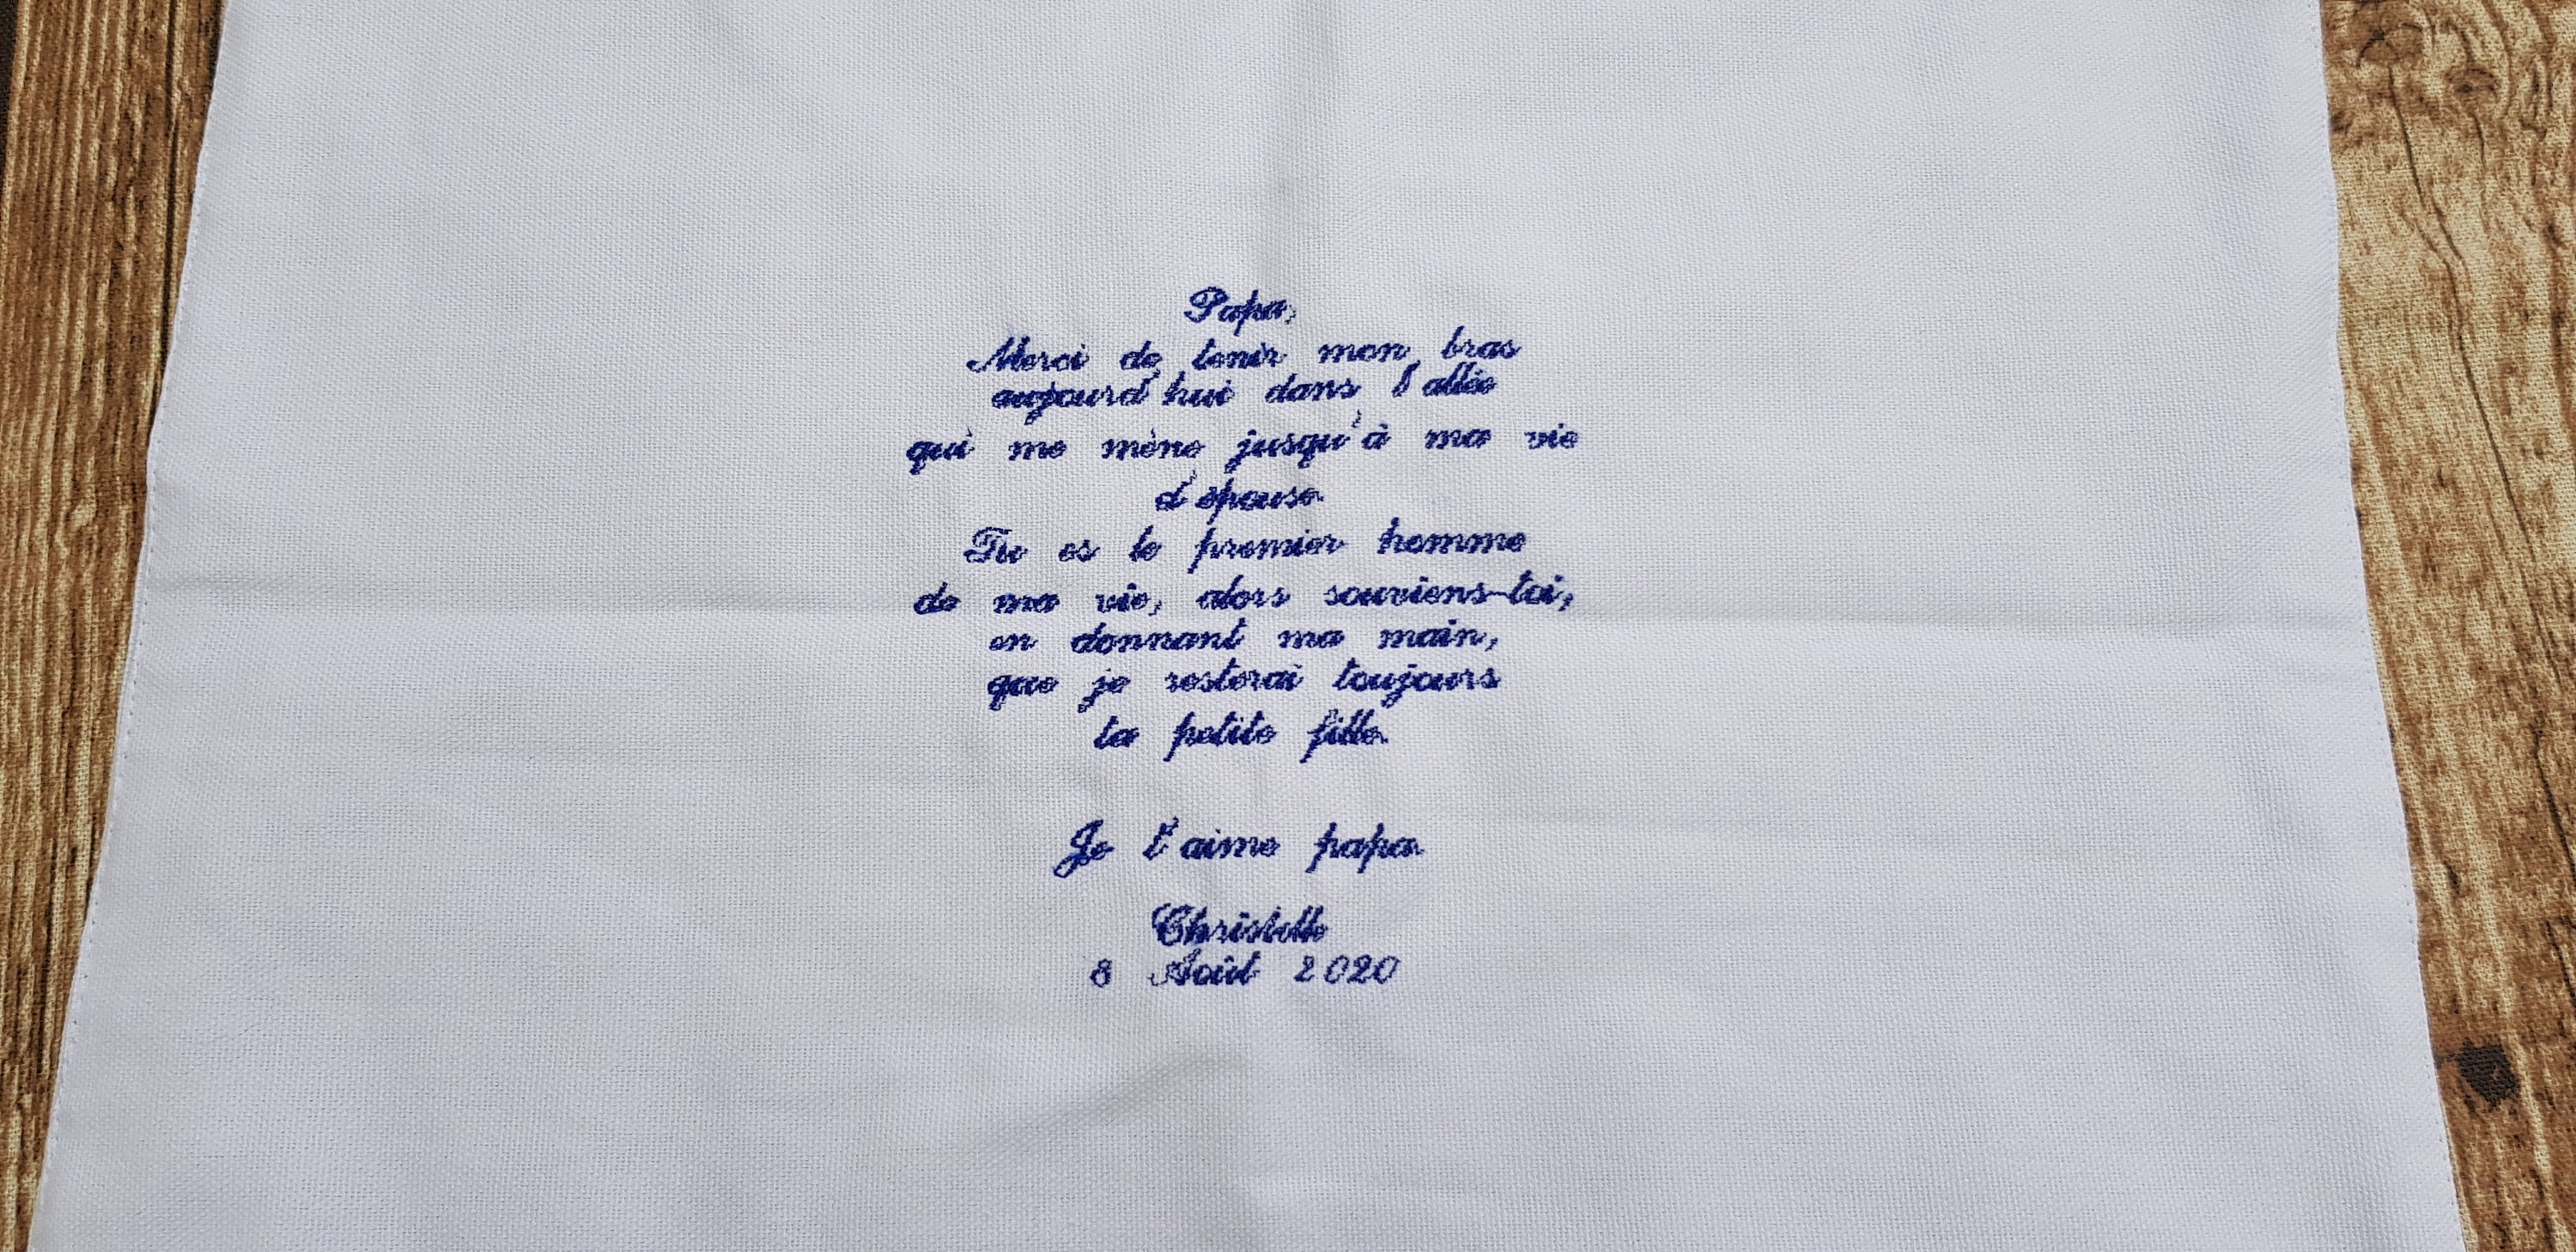 Papa,
Merci de tenir mon bras
aujourd'hui dans l'allée
qui me mène jusqu'à ma vie
d'épouse.
Tu es le premier homme
de ma vie, alors souviens-toi,
en donnant ma main,
que je resterai toujours
ta petite fille.
Je t'aime papa.
Christelle
8 Août 2020